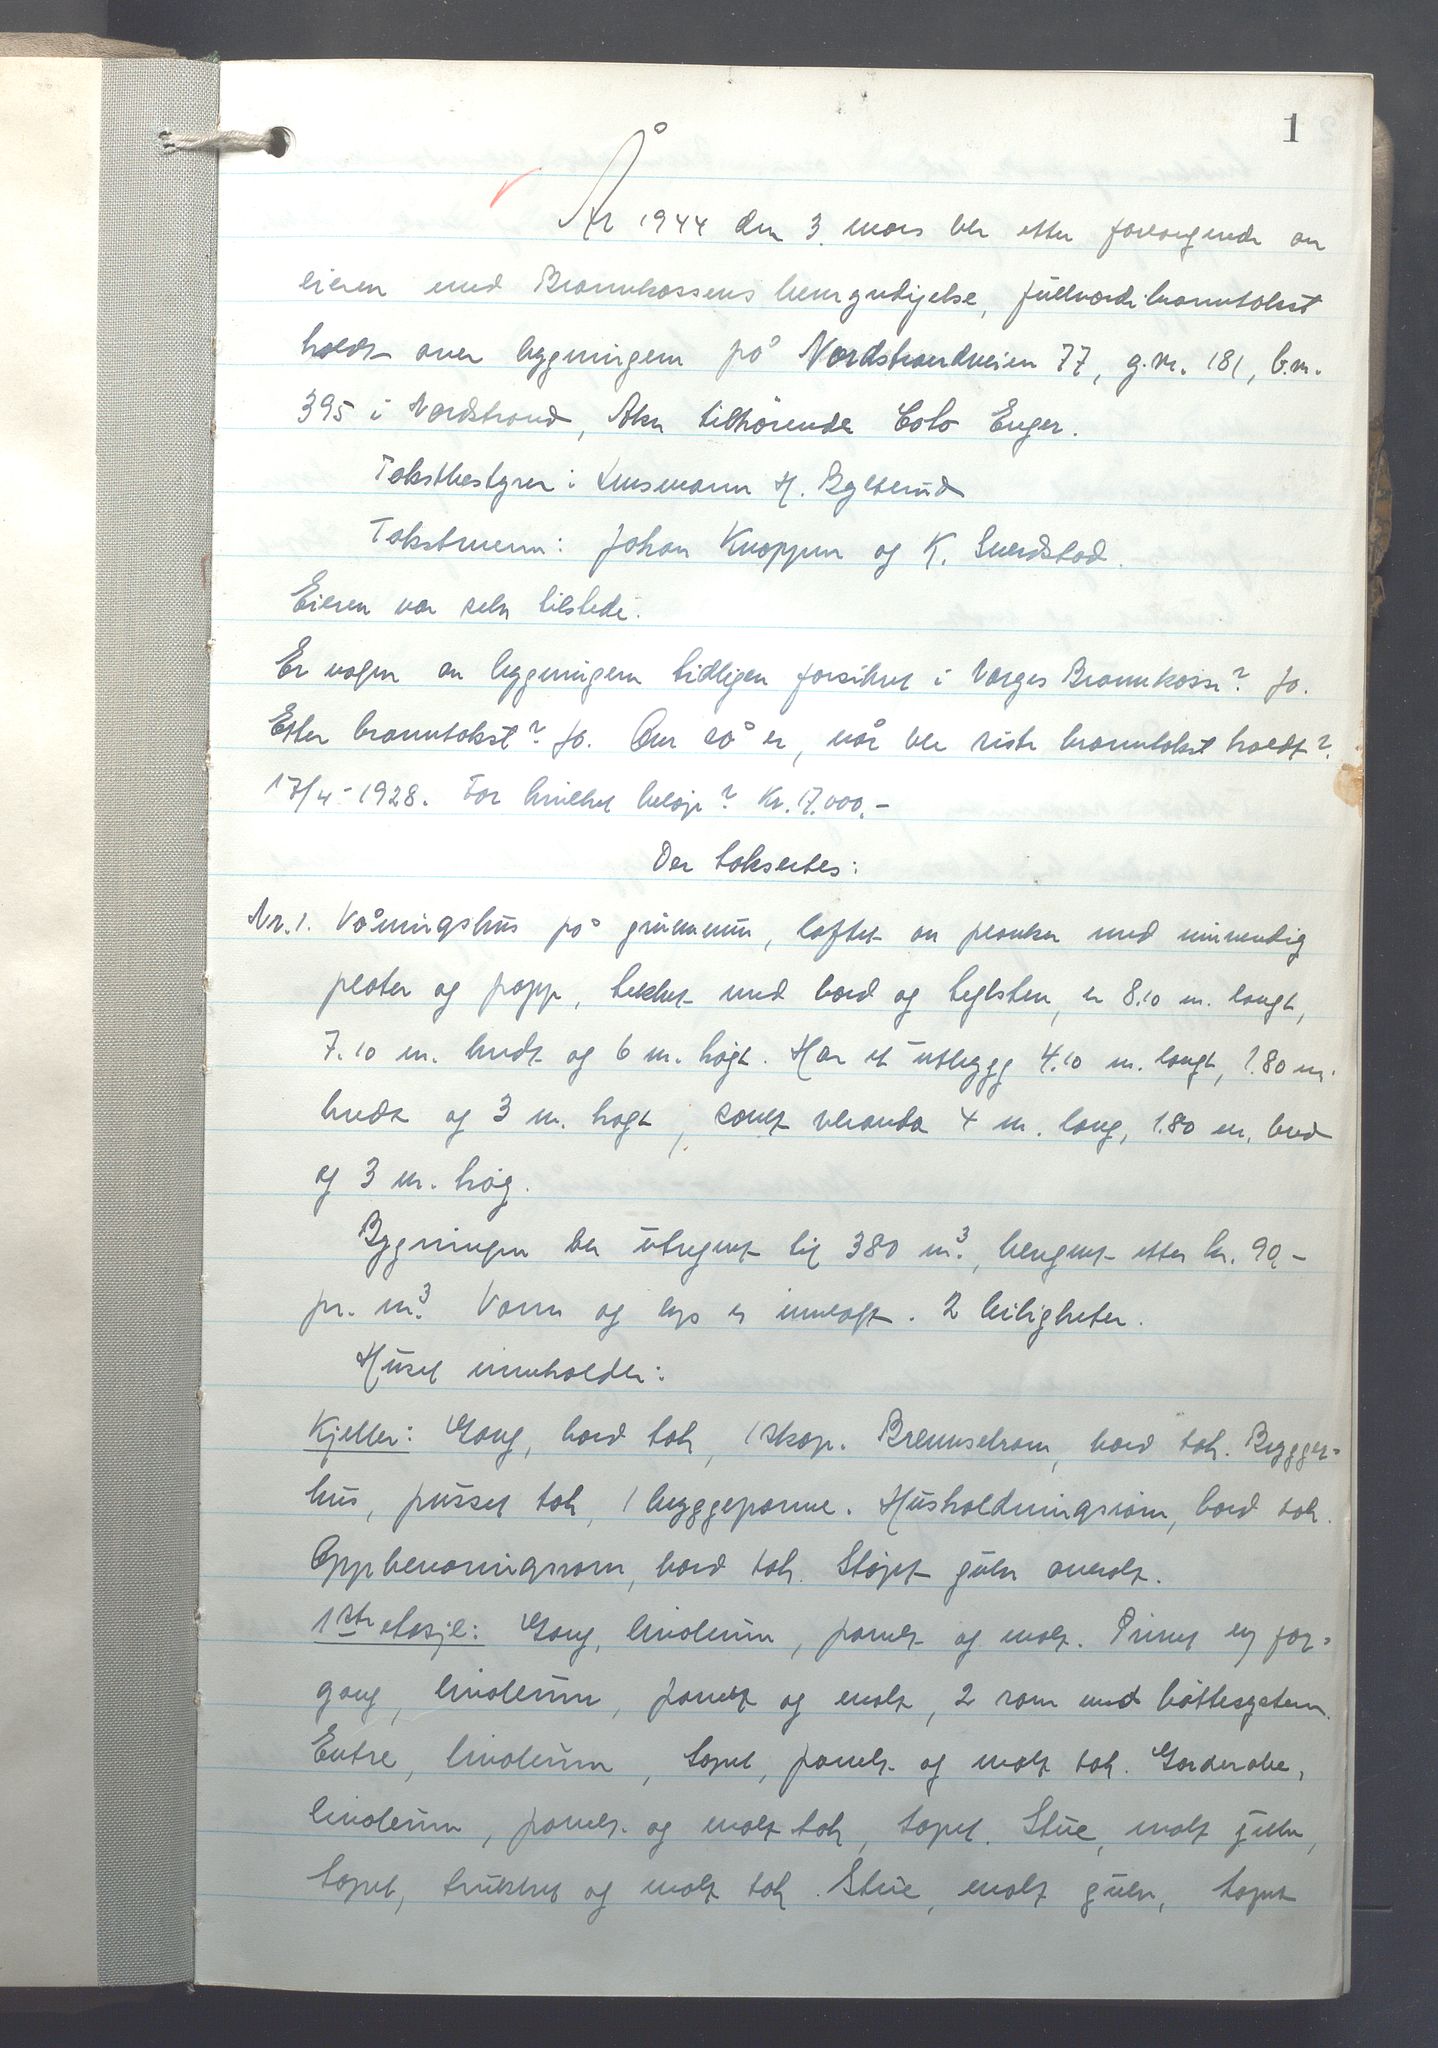 1
År 1944 den 3. mars ble etter forlangende av
eieren med Brannkassens bemyndigelse, fullverdibranntakst
holdt over bygningen på Nordstrandveien 77, g.nr. 181, b.nr.
395 i Nordstrand, Aker tilhørende Enger.
Takstbestyrer: Lensmann H. Bylterud
Takstmenn: Johan Knappen og K. Sverdstad.
Eieren var selv tilstede.
Er nogen av bygningene tidligere forsikret i Norges Brannkasse? Ja.
Etter branntakst? Ja. Om så er, når ble siste branntakst holdt?
17/4-1928. For hvilket beløp? Kr. 17.000,-
Der takseres:
Nr. 1. Våningshus på grunnmur, laftet av planker med innvendig
plater og papp, tekket med bord og teglsten, er 8.10 m. langt,
7.10 m. bredt og 6 m. høgt. Har et utbygg 4.10 m. langt, 1.80 m.
bredt og 3 m. høgt, samt veranda 4 m. lang, 1.80 m. bred
og 3 m. høg.
Bygningen ble utregnet til 380 m³., beregnet etter kr. 90,-
pr. m³. Vann og lys er innlagt. 2 leiligheter.
Huset inneholder:
Kjeller: Gang, bord tak, 1 skap. Brenselrom, bord tak. Brygger-
hus, pusset tak, 1 bryggepanne. Husholdningsrom, bord tak.
Oppbevaringsrom, bord tak. Støpt gulv overalt.
1ste etasje: Gang, linoleum, panelt og malt. Privet og for-
gang, linoleum, panelt og malt, 2 rom med bøttesystem.
Entre, linoleum, tapet, panelt og malt tak. Garderobe,
linoleum, panelt og malt tak, tapet. Stue, malt gulv,
tapet, trukket og malt tak. Stue, malt gulv, tapet